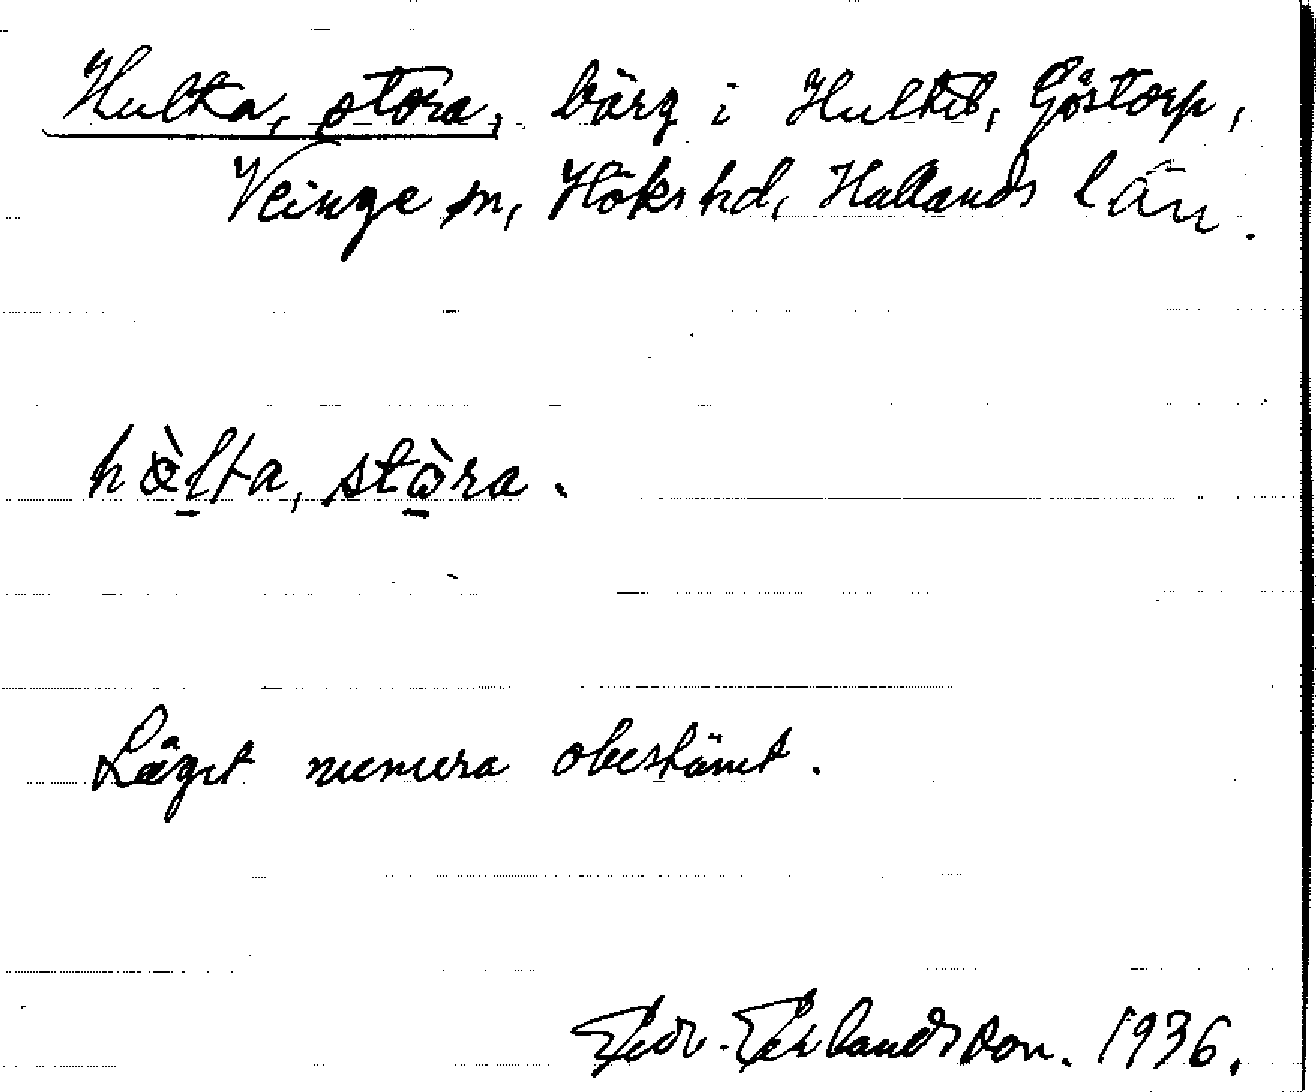 Hulta, stora, bärg i Hultet, Göstorp,
Veinge sn, Höks hd, Hallands län.
stòra.
Läget numera obestämt.
Erlandsson. 1936.